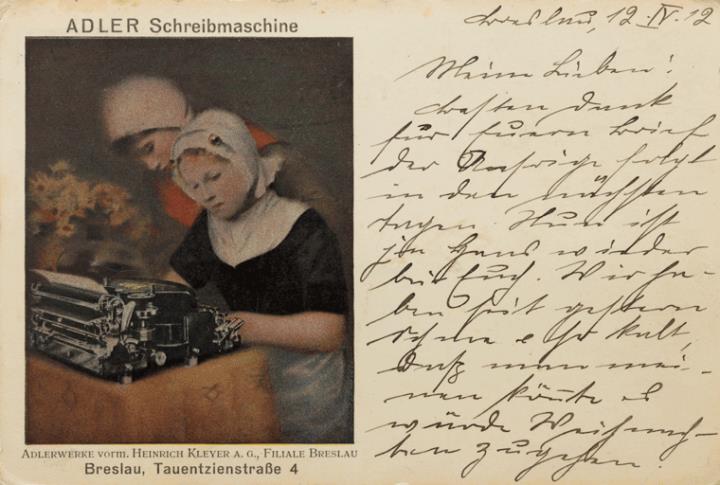 ADLER Schreibmaschine
ADLERWERKE vorm. HEINRICH KLEYER A. G., FILIALE BRESLAU
Breslau, Tauentzienstraße 4
Breslau, 12.IV.12
Meine Lieben!
Besten Dank
für Euern Brief
der Unsrige folgt
in den nächsten
Tagen. Nun ist
ja Hans wieder
bei Euch. Wir ha-
ben seit gestern
Schnee so kalt,
daß man mei-
nen könnte es
würde Weihnach-
ten zugehen.